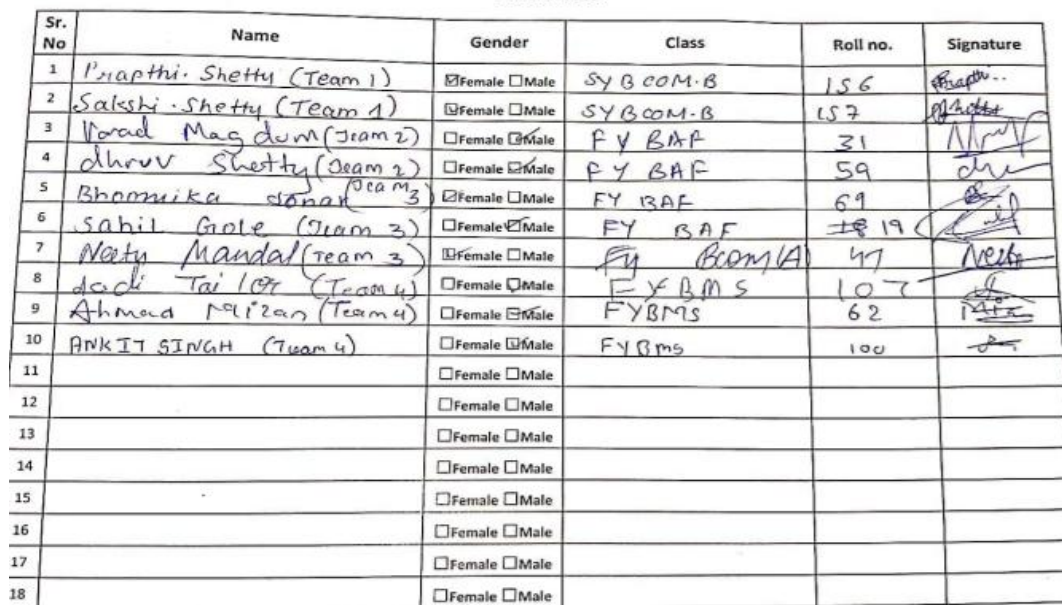 Sr. No Name Gender Class Roll no. Signature
1 Prapthi. Shetty (Team 1) ☑Female ☐Male SYBCOM.B 156 Prapthi..
2 Sakshi. Shetty (Team 1) ☑Female ☐Male SYBCOM-B 157
3 Varad Magdum (Team 2) ☐Female ☑Male FY BAF 31
4 dhruv Shetty (Team 2) ☐Female ☑Male FY BAF 59
5 Bhomuika (Team 3) ☑Female ☐Male FY BAF 69
6 Sahil Gole (Team 3) ☐Female ☑Male FY BAF 19
7 Neety Mandal (Team 3) ☑Female ☐Male FY BCom(A) 47
8 Tailor (Team 4) ☐Female ☑Male FYBMS 107
9 Ahmad (Team 4) ☐Female ☑Male FYBMS 62
10 ANKIT SINGH (Team 4) ☐Female ☑Male FYBms 100
11 ☐Female ☐Male
12 ☐Female ☐Male
13 ☐Female ☐Male
14 ☐Female ☐Male
15 ☐Female ☐Male
16 ☐Female ☐Male
17 ☐Female ☐Male
18 ☐Female ☐Male